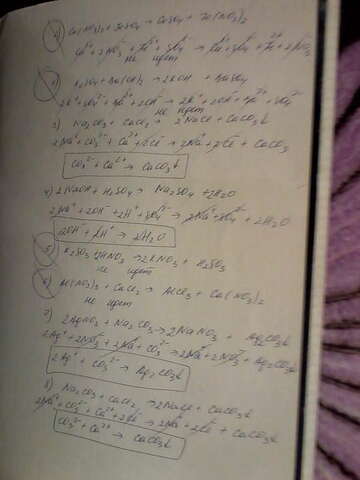 1) Ca(NO3)2 + FeSO4 → CaSO4 + Fe(NO3)2
не идет
2) K2SO4 + Ba(OH)2 2KOH + BaSO4
2K⁺ + SO4²⁻ + Ba²⁺ + 2OH⁻ → 2K⁺ + 2OH⁻ + Ba²⁺ + SO4²⁻
не идет
3) Na2CO3 + CaCl2 → 2NaCl + CaCO3↓
2Na⁺ + CO3²⁻ + Ca²⁺ + 2Cl⁻ → 2Na⁺ + 2Cl⁻ + CaCO3
CO3²⁻ + Ca²⁺ → CaCO3↓
4) 2NaOH + H2SO4 → Na2SO4 + 2H2O
2Na⁺ + 2OH⁻ + 2H⁺ + SO4²⁻ → 2Na⁺ + SO4²⁻ + 2H2O
2OH⁻ + 2H⁺ → 2H2O
5) K2SO3 + 2HNO3 → 2KNO3 + H2SO3
не идет
6) + CaCl2 → AlCl3 + Ca(NO3)2
не идет
7) 2AgNO3 + Na2CO3 → 2NaNO3 + Ag2CO3↓
2Ag⁺ + 2NO3⁻ + 2Na⁺ + CO3²⁻ → 2Na⁺ + 2NO3⁻ + Ag2CO3↓
2Ag⁺ + CO3²⁻ → Ag2CO3↓
8) Na2CO3 + CaCl2 → 2NaCl + CaCO3↓
2Na⁺ + CO3²⁻ + Ca²⁺ + 2Cl⁻ → 2Na⁺ + 2Cl⁻ + CaCO3↓
CO3²⁻ + Ca²⁺ → CaCO3↓